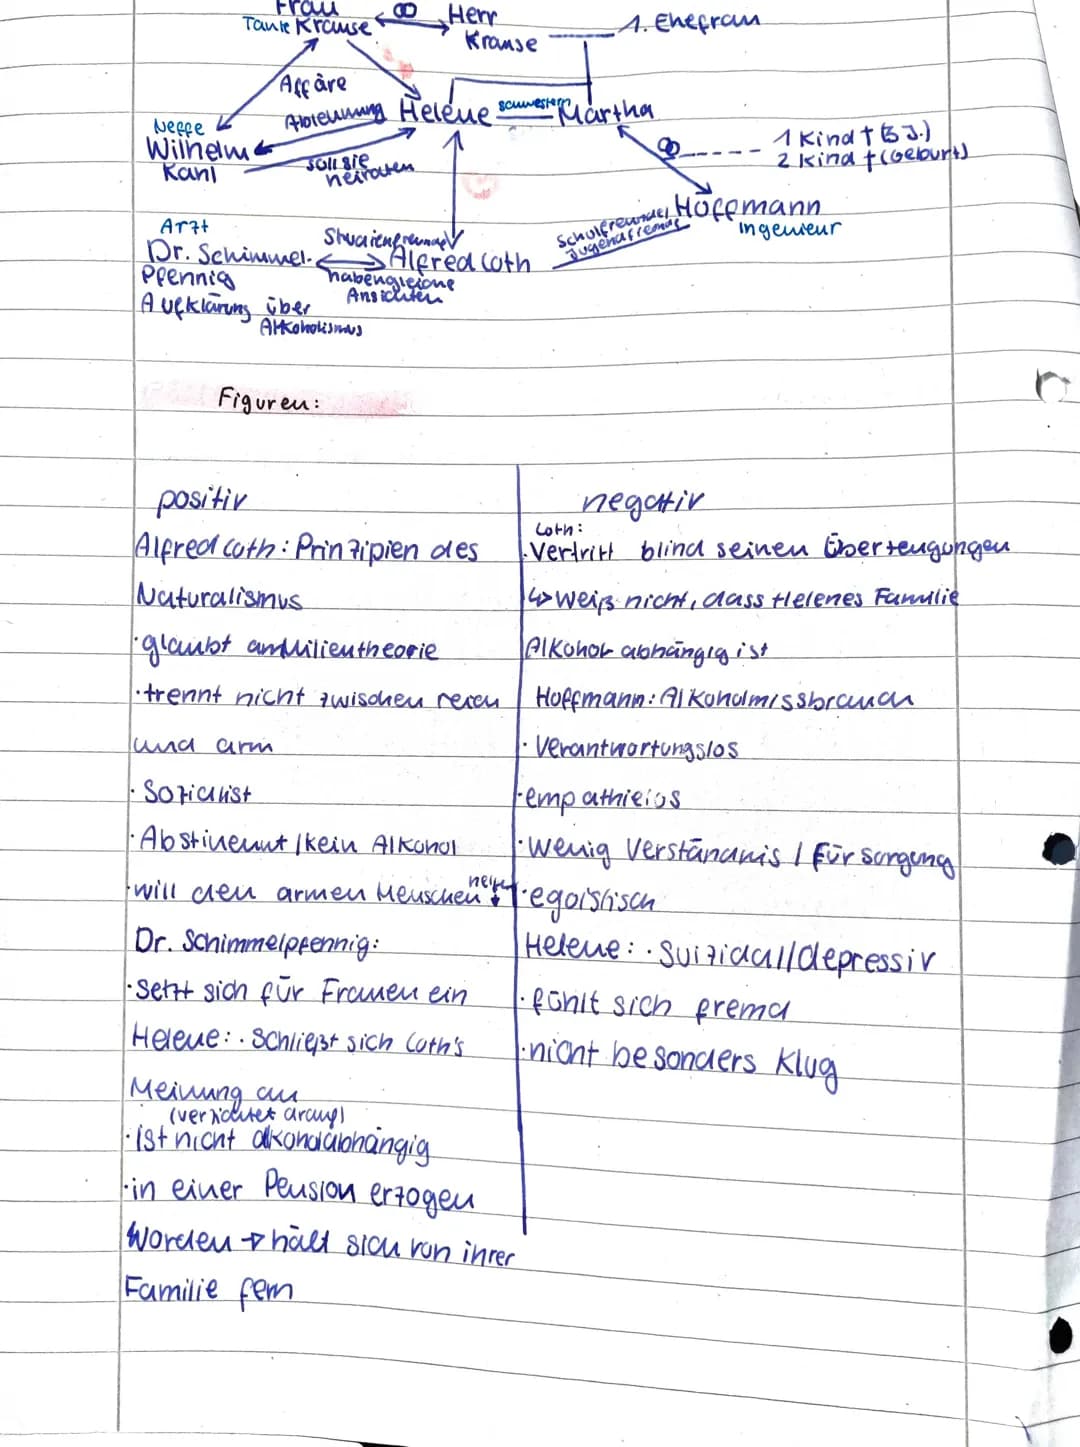 Frau Herr 1. Ehefrau
Tante Krause Krause
Affäre
Ablehnung Helene schwestern Martha
Neffe
Wilhelm
Kahl
soll sie
heiraten
1 Kind † (3 J.)
2 Kind † (Geburt)
Hoffmann
Ingenieur
Schulfreunde/
Jugendfreunde
Arzt
Dr. Schimmel-
Pfennig
Studienfreunde
Alfred Loth
haben gleiche
Ansichten
Aufklärung über
Alkoholismus
Figuren:
positiv
Alfred Loth: Prinzipien des
Naturalismus
·glaubt an Milientheorie
·trennt nicht zwischen reich
und arm
·Sozialist
·Abstinennt /kein Alkohol
·will den armen Menschen helfen
Dr. Schimmelpfennig:
·Setzt sich für Frauen ein
Helene: ·Schließt sich Loth's
Meinung an
(verzichtet drauf)
·ist nicht alkoholabhängig
·in einer Pension erzogen
Worden → hält sich von ihrer
Familie fern
negativ
Loth:
·Vertritt blind seinen Überzeugungen
↳ Weiß nicht, dass Helenes Familie
Alkohol abhängig ist
Hoffmann: Alkoholmissbrauch
·Verantwortungslos
·empathielos
·Wenig Verständnis / Fürsorgung
·egoistisch
Helene: ·Suizidal//depressiv
·fühlt sich fremd
·nicht besonders klug